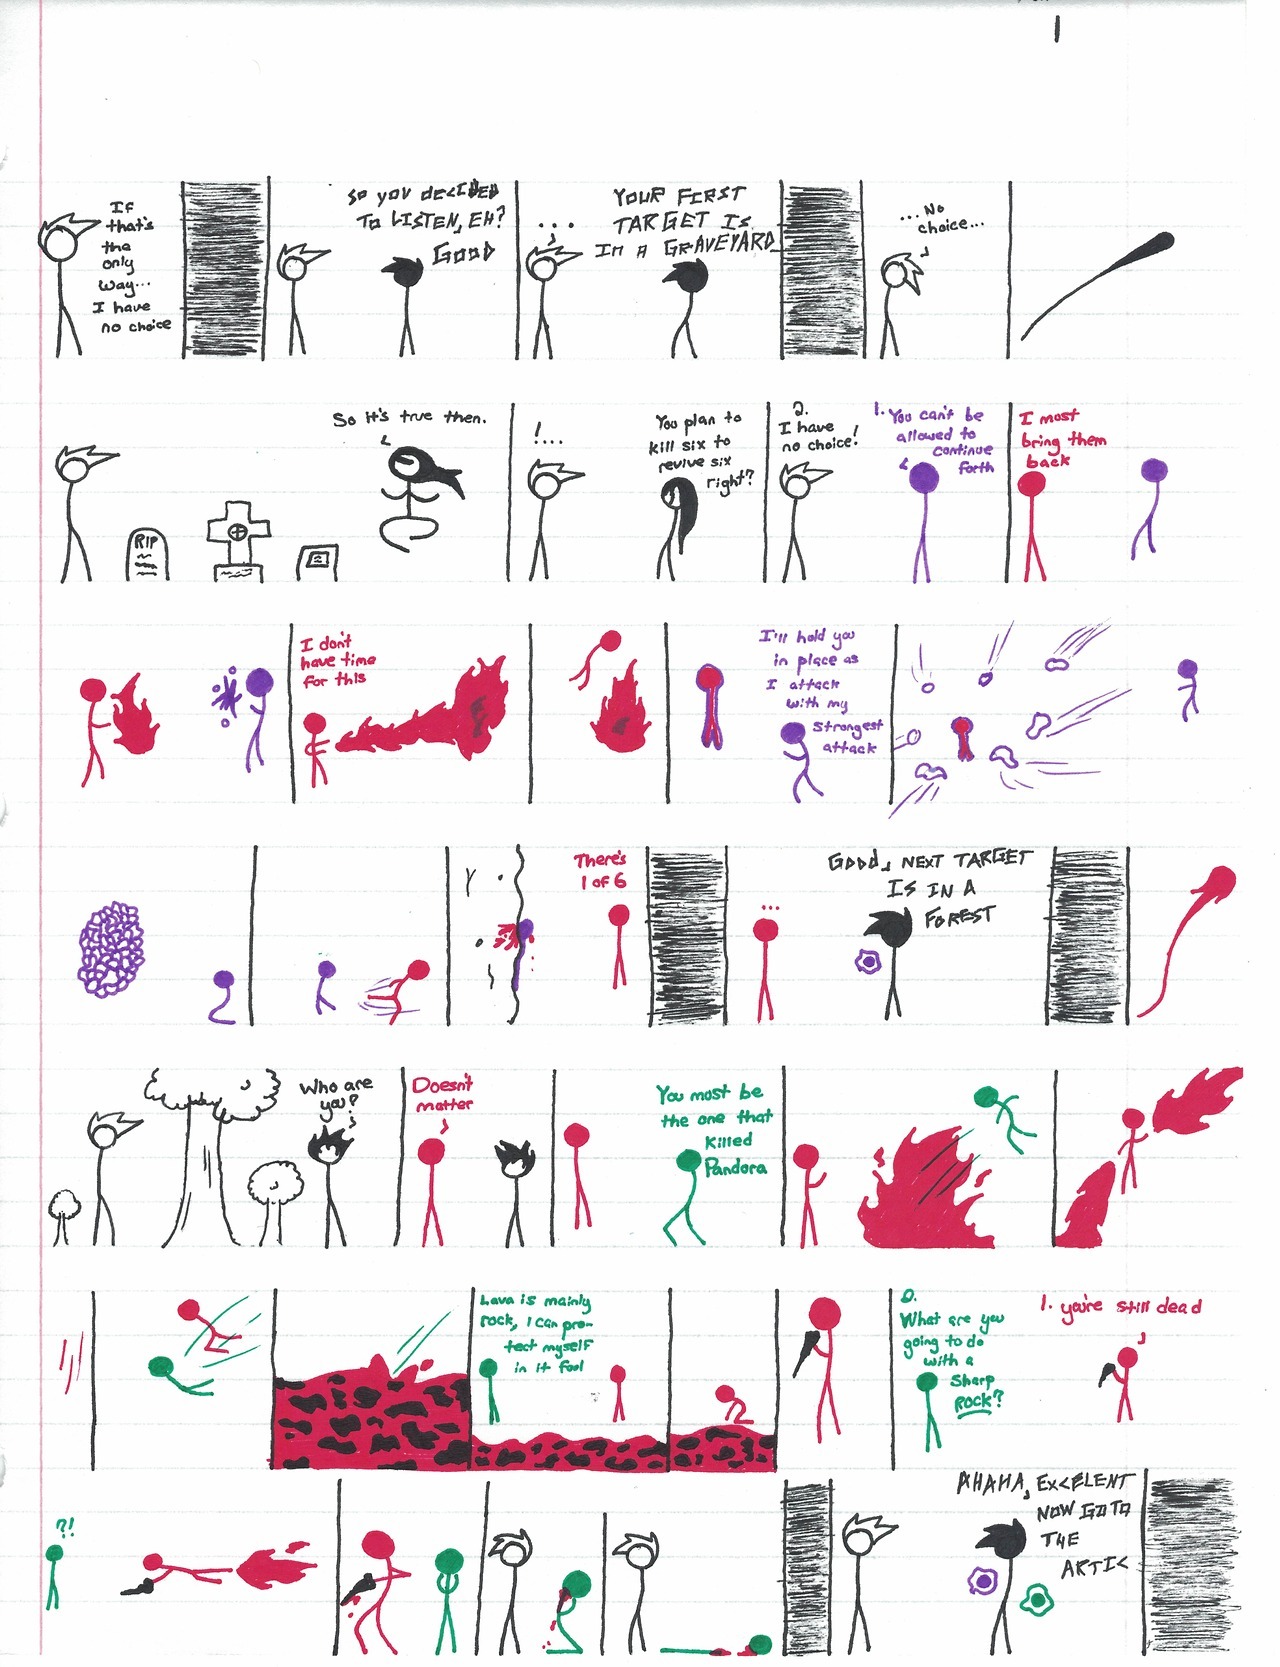 1
If
that's
the
only
way...
I have
no choice
SO YOU DECIDED
TO LISTEN, EH?
GOOD
...
YOUR FIRST
TARGET IS
IN A GRAVEYARD
...No
choice...
RIP
So it's true then.
!...
You plan to
kill six to
revive six
right?
2.
I have
no choice!
1. You can't be
allowed to
continue
forth
I must
bring them
back
I don't
have time
for this
I'll hold you
in place as
I attack
with my
strongest
attack
There's
1 of 6
...
GOOD, NEXT TARGET
IS IN A
FOREST
Who are
you?
Doesn't
matter
You must be
the one that
killed
Pandora
Lava is mainly
rock, I can pro-
tect myself
in it fool
2.
What are you
going to do
with a
sharp
ROCK?
1. you're still dead
?!
AHAHA, EXCELENT
NOW GO TO
THE
ARTIC